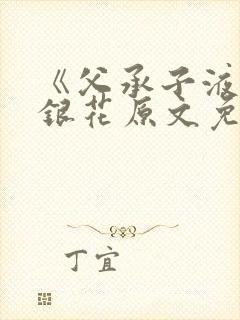 《父承子液
銀花原文免
丁宜